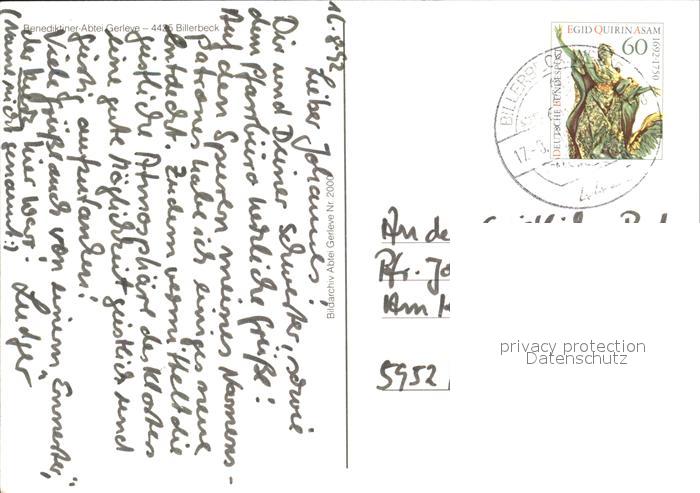 Benediktiner-Abtei Gerleve – 4425 Billerbeck
16.8.93
Lieber Johannes!
Dir und Deiner Schwester, sowie
dem Pfarrbüro herzliche Grüße!
Auf den Spuren meines Namens-
patrones habe ich einiges neue
entdeckt. Zudem vermittelt die
geistliche Atmosphäre des Klosters
eine gute Möglichkeit geistlich und
aufzutanken!
Viele Grüße auch von einem "Ennester",
der kurz hier war! Ludger
(Name nicht genannt!)
Bildarchiv Abtei Gerleve Nr. 2000
EGID QUIRIN ASAM
1692-1750
60
DEUTSCHE BUNDESPOST
BILLERB
17.-8.
An de
Pfr. Jo
Am
5952
privacy protection
Datenschutz